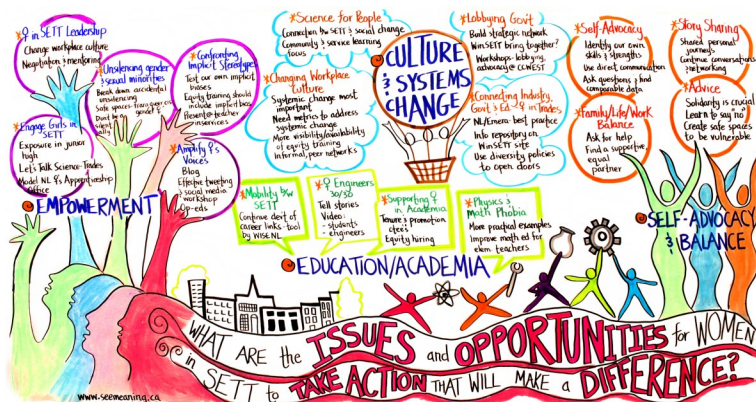 *♀ in SETT Leadership
Change workplace culture
Negotiation & mentoring
*Unsilencing gender
& sexual minorities
Break down accidental
unsilencing
*Confronting
Implicit Stereotypes
Test our own implicit
biases
Equity training should
include implicit bias
*Engage Girls in
SETT
Exposure in junior
high
Let's Talk Science-Trades
Model NL ♀'s Apprenticeship
Office
*Amplify ♀'s
Voices
Blog
Effective tweeting
& social media
workshop
Op-eds
EMPOWERMENT
*Science for People
Connection b/w SETT & social change
Community & service learning
focus
*Changing Workplace
Culture
Systemic change most
important
Need metrics to address
systemic change
More visibility/availability
of equity training
Informal, peer networks
CULTURE
& SYSTEMS
CHANGE
*Lobbying Gov't
Build strategic network
WinSETT bring together?
Workshops-lobbying,
advocacy @ CCWEST
*Connecting Industry,
Gov't & Ed-♀ in Trades
NL/Emera: best practice
Info repository on
WinSETT site
Use diversity policies
to open doors
*Self-Advocacy
Identify our own
skills & strengths
Use direct communication
Ask questions & find
comparable data
*Story Sharing
Shared personal
journeys
Continue conversations
& networking
*Family/Life/Work
Balance
Ask for help
Find a supportive,
equal
partner
*Advice
Solidarity is crucial
Learn to say "no"
Create safe spaces
to be vulnerable
SELF-ADVOCACY
& BALANCE
*Mobility b/w
SETT
Continue dev't of
career links-tool
by WISENL
*♀ Engineers
30/30
Tell stories
Video:
- students
- engineers
*Supporting ♀
in Academia
Tenure & promotion
Equity hiring
*Physics &
Math Phobia
More practical examples
Improve math ed for
elem. teachers
EDUCATION/ACADEMIA
WHAT ARE the ISSUES and OPPORTUNITIES for WOMEN
in SETT to TAKE ACTION THAT WILL MAKE A DIFFERENCE?
www.seemeaning.ca